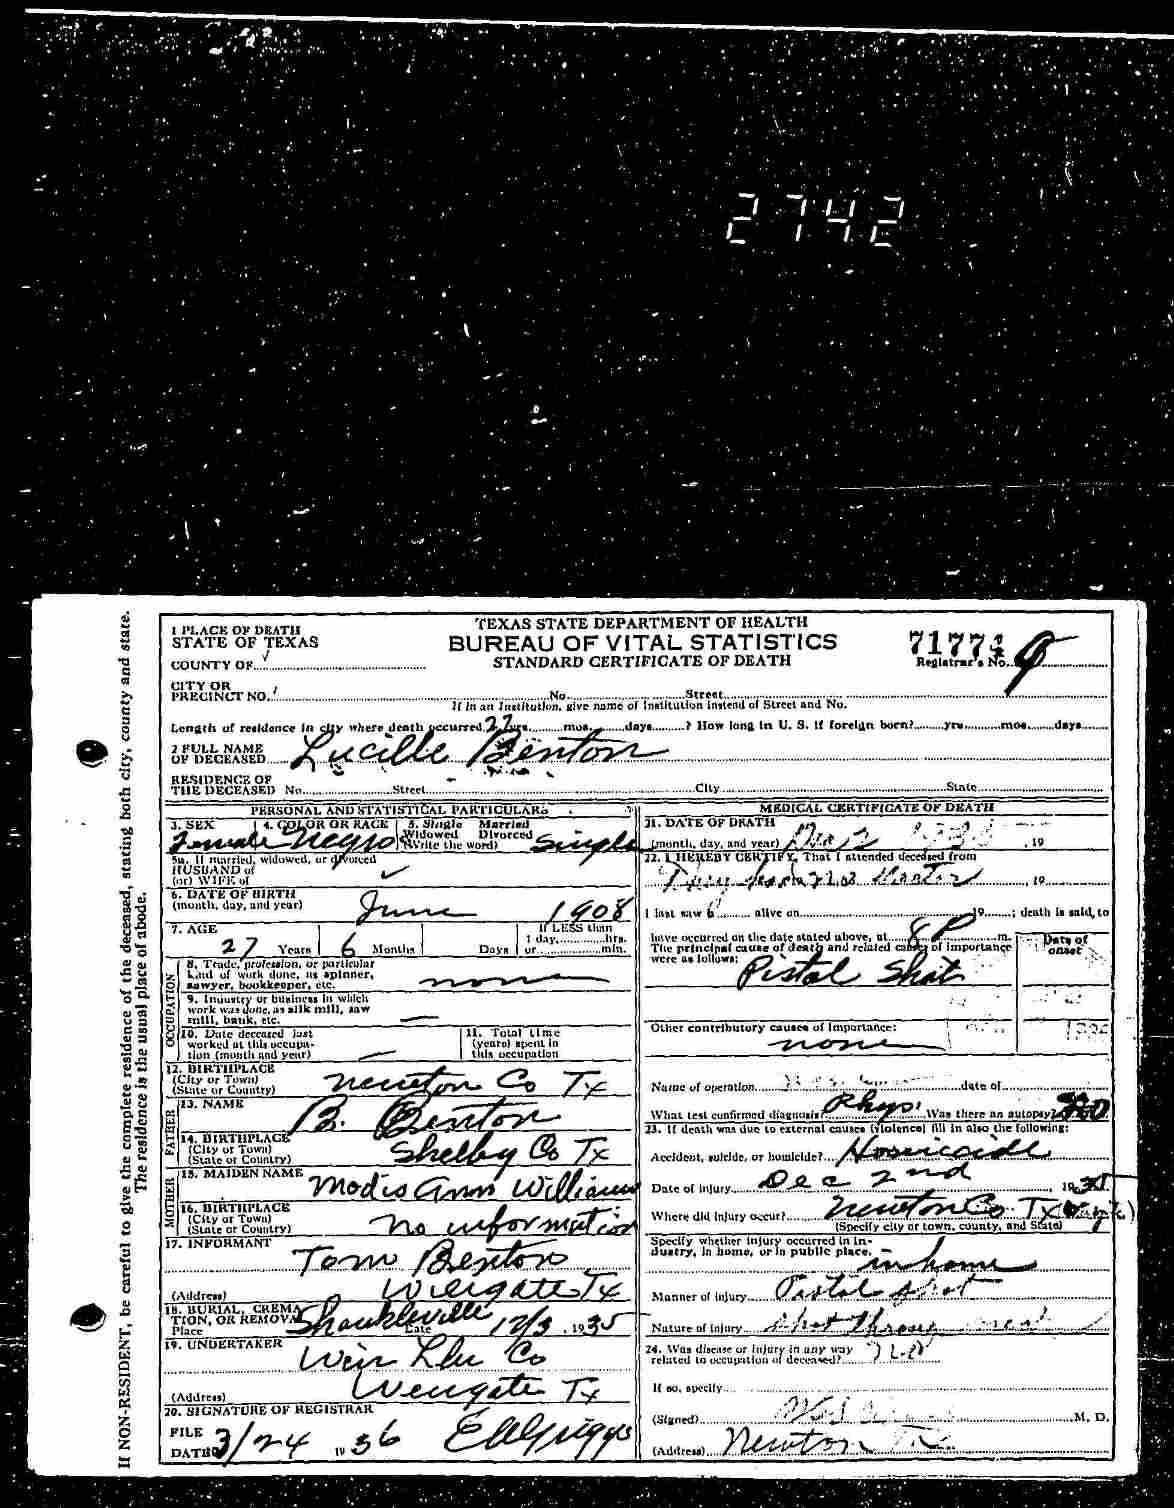 2742
TEXAS STATE DEPARTMENT OF HEALTH
BUREAU OF VITAL STATISTICS
STANDARD CERTIFICATE OF DEATH
7177
Registrar's No. 9
1 PLACE OF DEATH
STATE OF TEXAS
COUNTY OF
CITY OR
PRECINCT NO. No. Street
If in an Institution, give name of Institution instead of Street and No.
Length of residence in city where death occurred 27 yrs. mos. days ? How long in U. S. if foreign born? yrs. mos. days
2 FULL NAME
OF DECEASED Lucille Benton
RESIDENCE OF
THE DECEASED No. Street City State
PERSONAL AND STATISTICAL PARTICULARS
3. SEX 4. COLOR OR RACE 5. Single Married
Widowed Divorced
(Write the word)
Female Negro Single
5a. If married, widowed, or divorced
HUSBAND of
(or) WIFE of
6. DATE OF BIRTH
(month, day, and year) June 1908
7. AGE If LESS than
1 day, hrs.
27 Years 6 Months Days or min.
OCCUPATION
8. Trade, profession, or particular
kind of work done, as spinner,
sawyer, bookkeeper, etc. none
9. Industry or business in which
work was done, as silk mill, saw
mill, bank, etc. —
10. Date deceased last
worked at this occupa-
tion (month and year) —
11. Total time
(years) spent in
this occupation
12. BIRTHPLACE
(City or Town)
(State or Country) Newton Co Tx
FATHER
13. NAME B. Benton
14. BIRTHPLACE
(City or Town)
(State or Country) Shelby Co Tx
MOTHER
15. MAIDEN NAME Modis Ann Williams
16. BIRTHPLACE
(City or Town)
(State or Country) no information
17. INFORMANT Tom Benton
(Address) Wiergate Tx
18. BURIAL, CREMA
TION, OR REMOVAL
Place Shankleville Date 12/3, 1935
19. UNDERTAKER Wier Co
(Address) Wiergate Tx
20. SIGNATURE OF REGISTRAR
FILE
DATE 3/24 1936 E Griggs
MEDICAL CERTIFICATE OF DEATH
21. DATE OF DEATH
(month, day, and year) Dec 2 , 19
22. I HEREBY CERTIFY, That I attended deceased from
, 19
I last saw h alive on 19 ; death is said, to
have occurred on the date stated above, at 8 P m.
The principal cause of death and related causes of importance
were as follows: Date of
onset
Pistol Shot
Other contributory causes of importance:
none
Name of operation date of
What test confirmed diagnosis? Phys. Was there an autopsy?
23. If death was due to external causes (violence) fill in also the following:
Accident, suicide, or homicide? Homicide
Date of injury Dec 2nd 1935
Where did injury occur? Newton Co Tx
(Specify city or town, county, and State)
Specify whether injury occurred in in-
dustry, in home, or in public place. in home
Manner of injury Pistol shot
Nature of injury shot through
24. Was disease or injury in any way
related to occupation of deceased?
If so, specify
(Signed) M. D.
(Address) Newton Tx
If NON-RESIDENT, be careful to give the complete residence of the deceased, stating both city, county and state.
The residence is the usual place of abode.